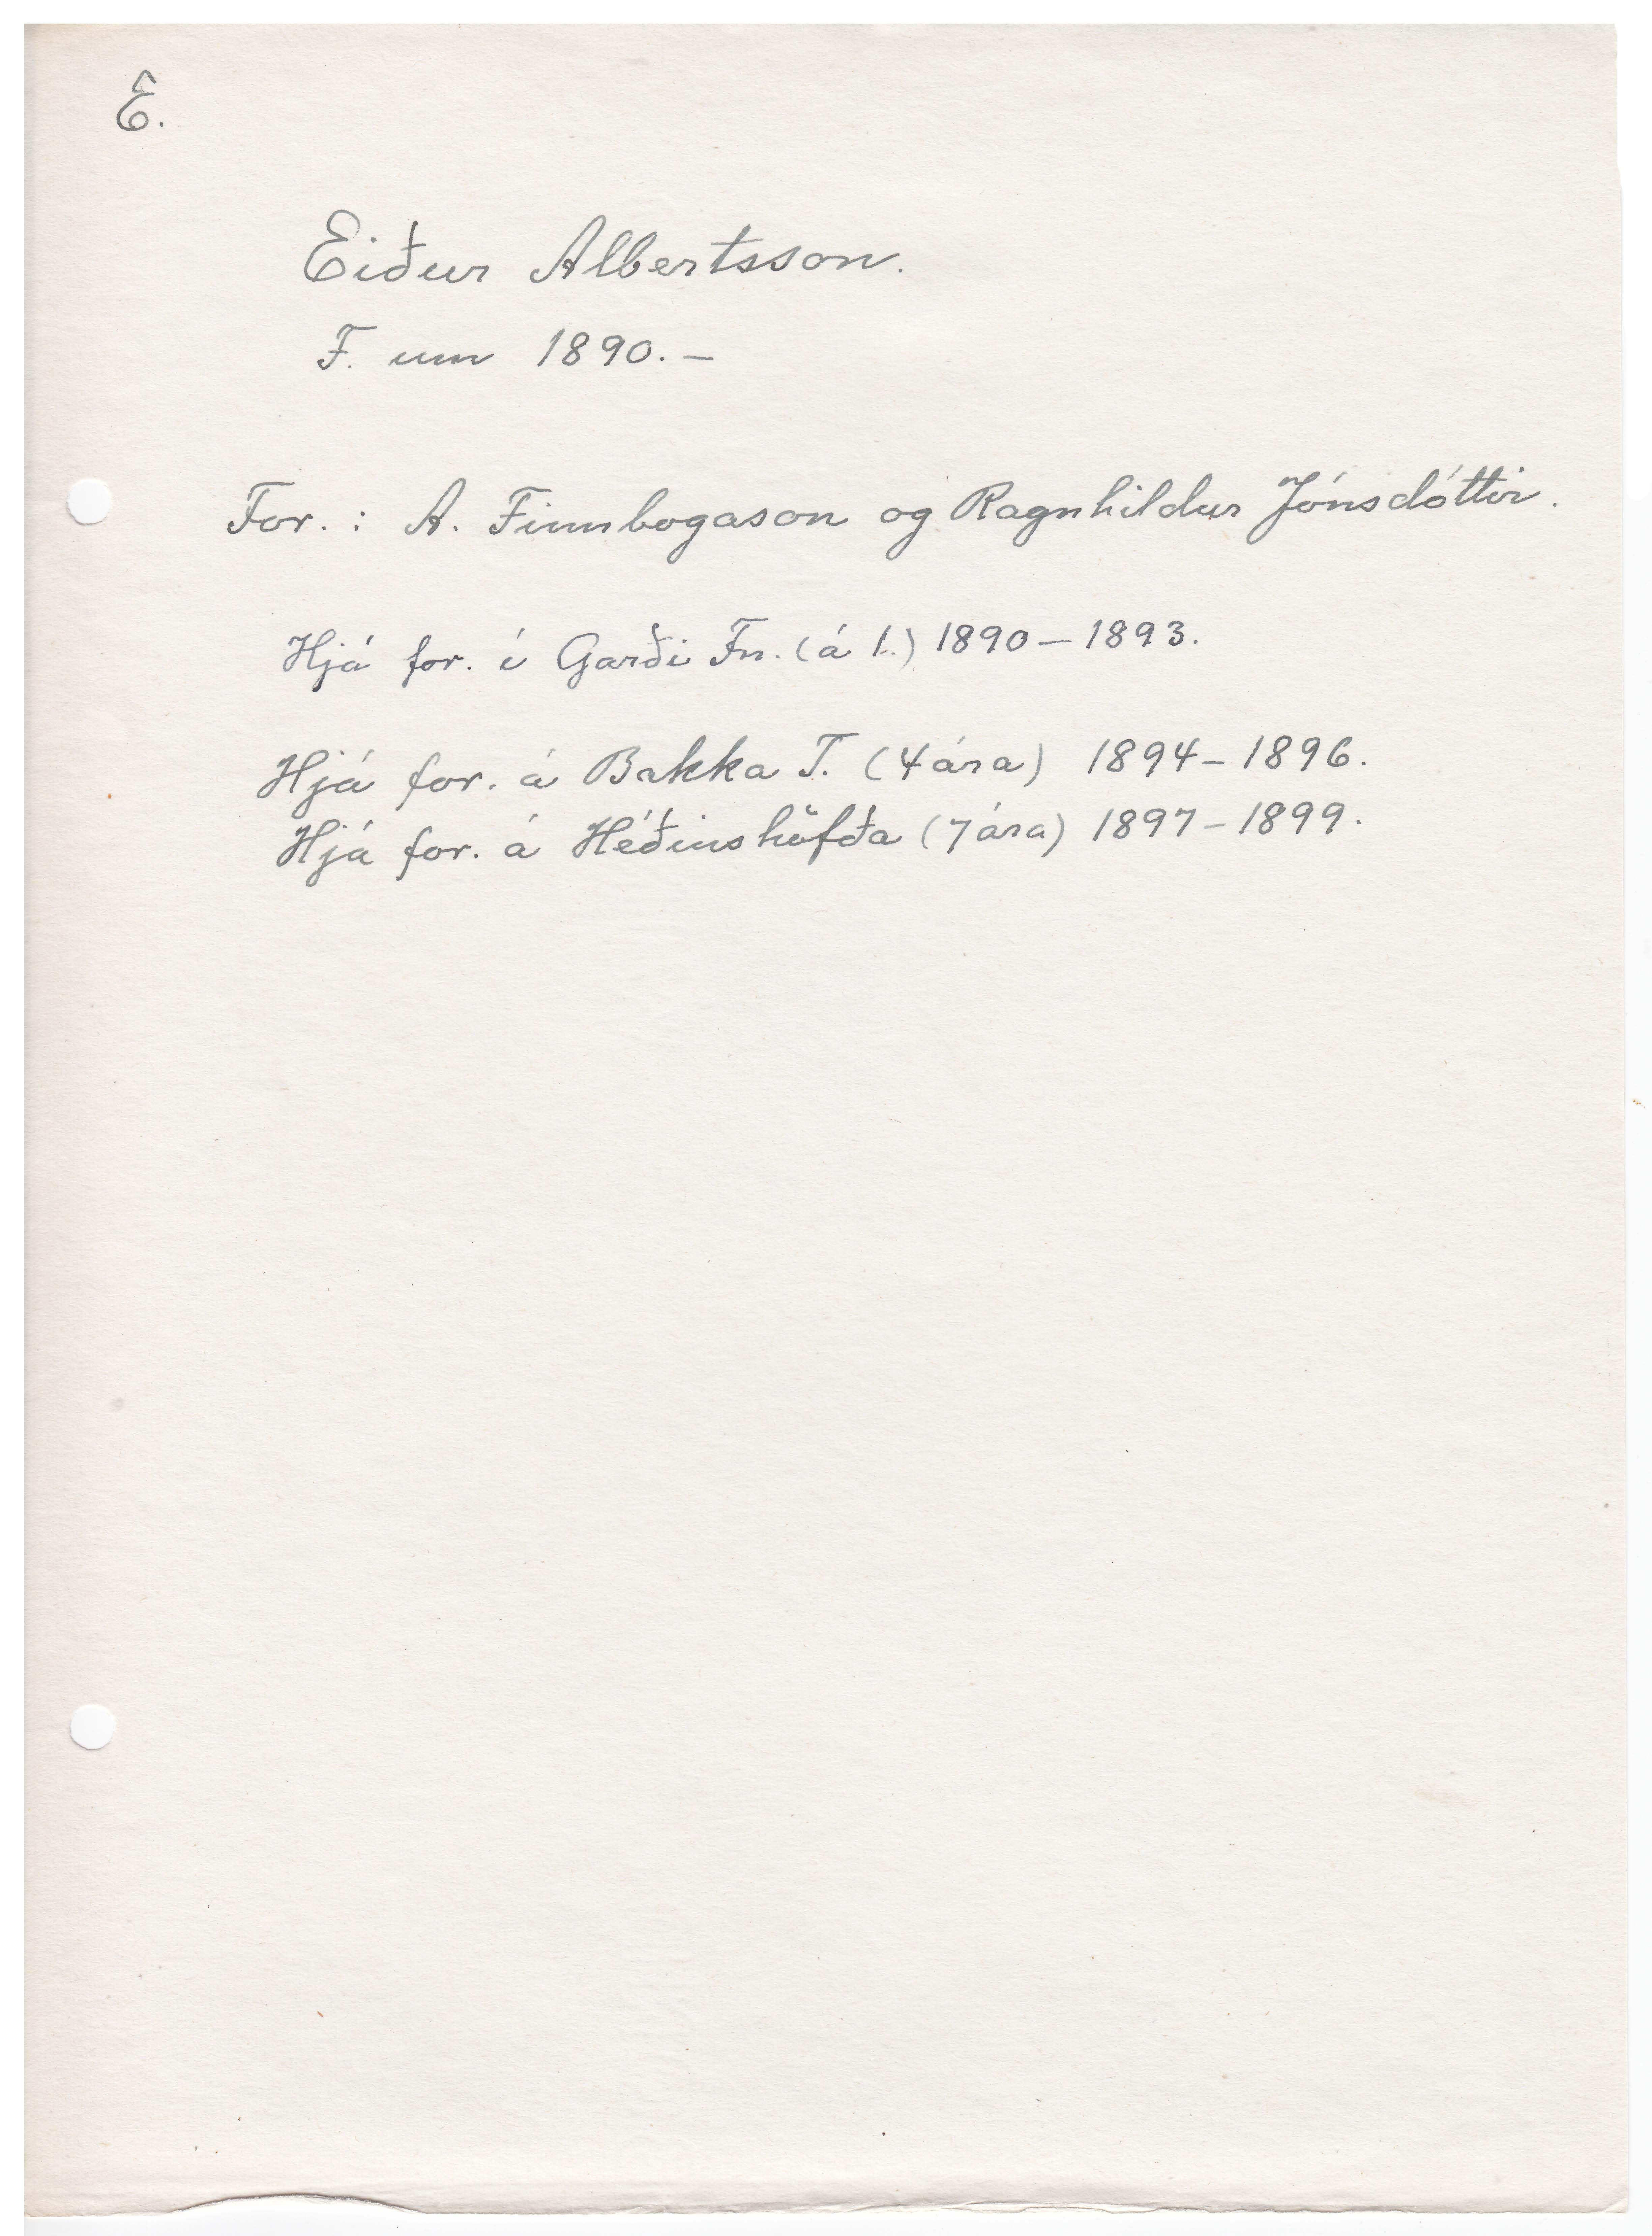 E.
Eiður Albertsson.
F. um 1890. –
For. : A. Finnbogason og Ragnhildur Jónsdóttir.
Hjá for. í Garði Fn. (á 1.) 1890 – 1893.
Hjá for. á Bakka T. (4 ára) 1894 – 1896.
Hjá for. á Héðinshöfða (7 ára) 1897 – 1899.